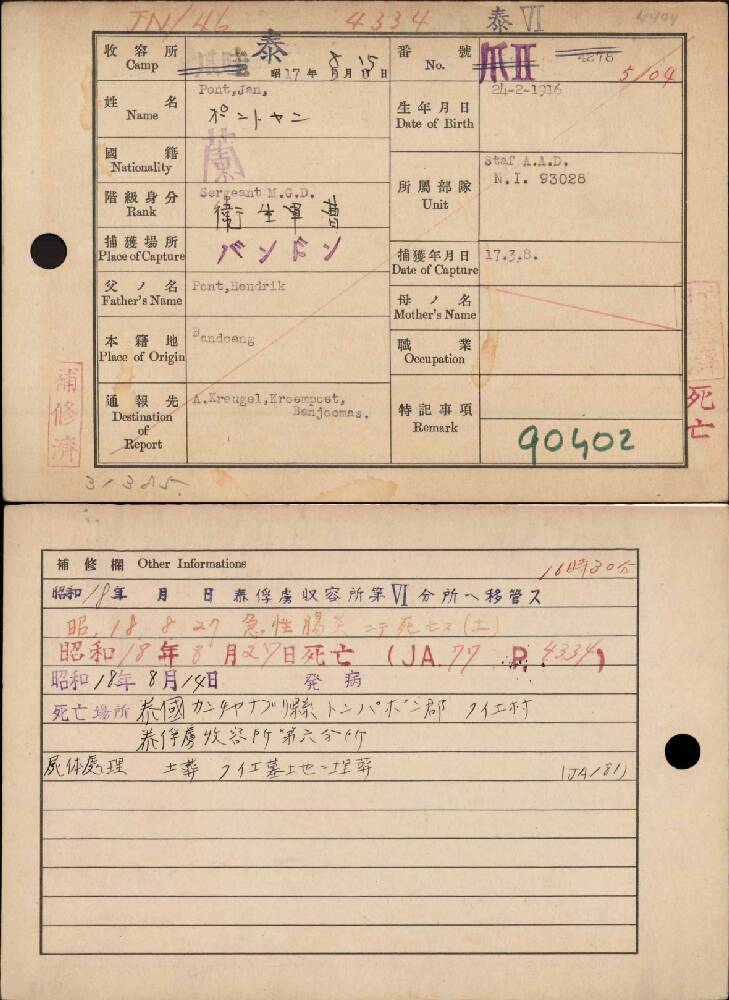 JN/46 4334 泰VI 4404
收容所 Camp 泰 昭17年 8月15日
番號 No. 爪II 4278 5/04
姓名 Name Pont,Jan, ポントヤン
生年月日 Date of Birth 24-2-1916
國籍 Nationality 蘭
所屬部隊 Unit Staf A.A.D.
N.I. 93028
階級身分 Rank Sergeant M.G.D.
衛生軍曹
捕獲場所 Place of Capture バンドン
捕獲年月日 Date of Capture 17.3.8.
父ノ名 Father's Name Pont,Hendrik
母ノ名 Mother's Name
本籍地 Place of Origin Bandoeng
職業 Occupation
通報先 Destination of Report A.Kreugel,Kroempoet,
Banjoemas.
特記事項 Remark 90402
補修濟
死亡
31385
補修欄 Other Informations 16時30分
昭和18年 月 日 泰俘虜収容所第VI分所ヘ移管ス
昭.18.8.27 急性腸炎ニテ死亡ス(土)
昭和18年8月27日死亡 (JA.77 P.4334)
昭和18年8月14日 発病
死亡場所 泰國カンチャナブリ縣トンパボン郡 クイエ村
泰俘虜收容所第六分所
屍体處理 土葬 クイエ墓地ニ埋葬 (JA181)